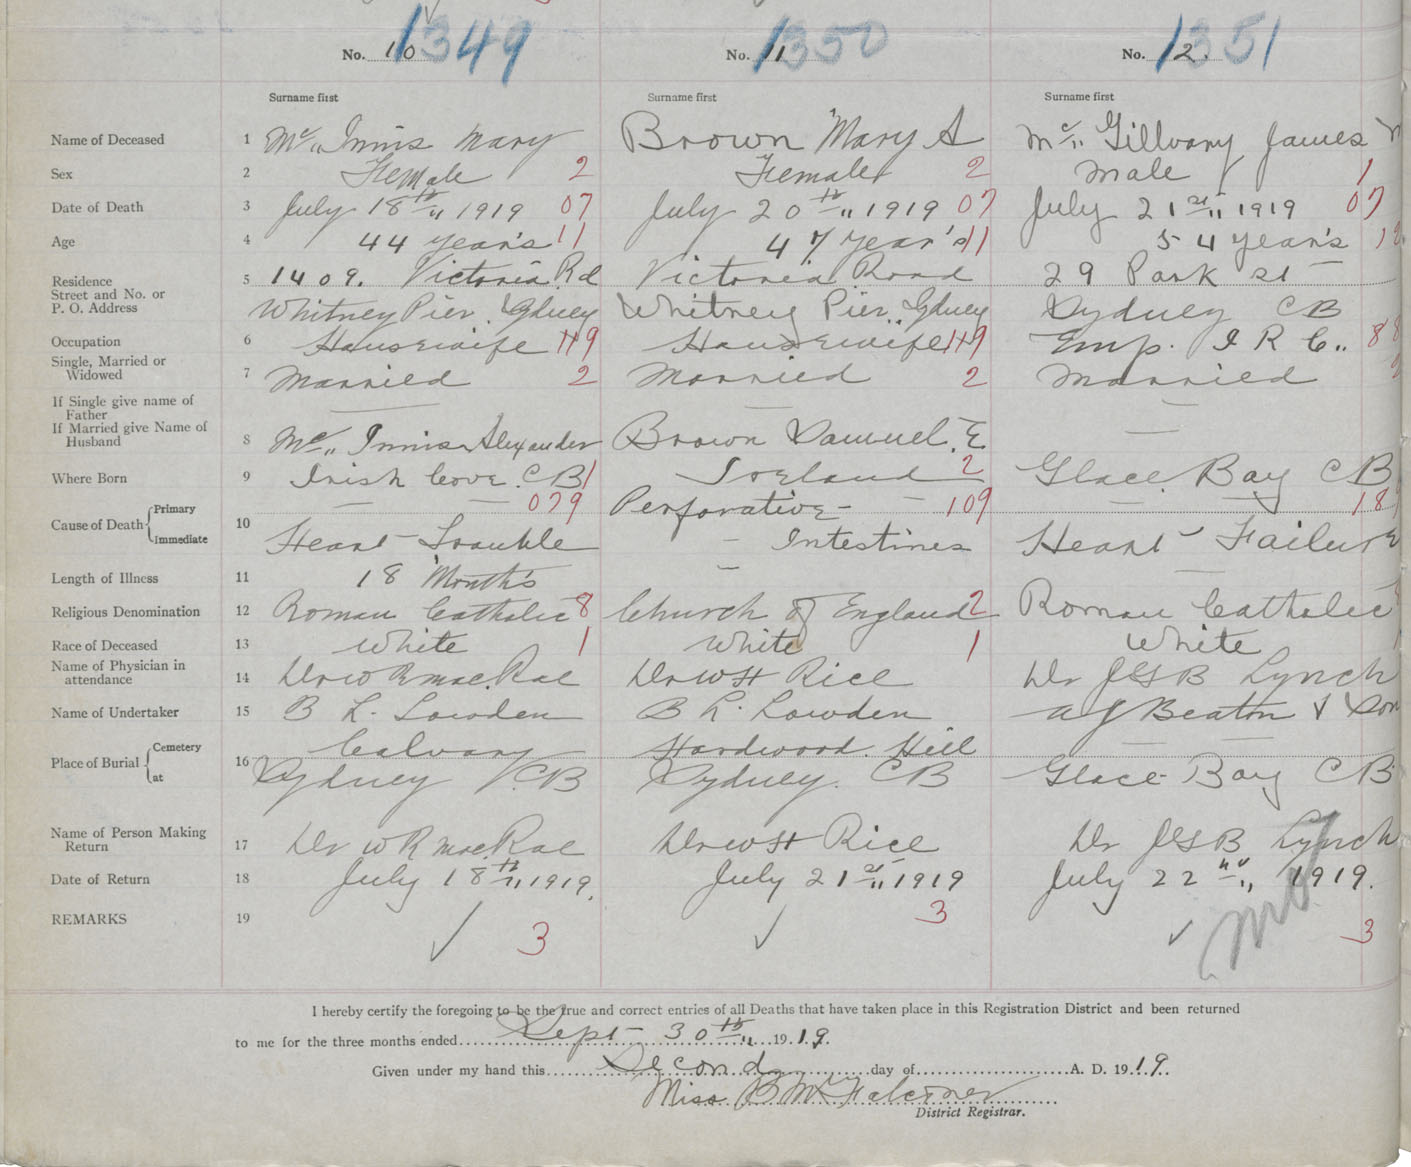 1349 1350 1351
No. 10 No. 11 No. 12.
Surname first Surname first Surname first
Name of Deceased 1 Mc,, Innis Mary Brown Mary A Mc,, Gillvary James
Sex 2 Female 2 Female 2 Male 1
Date of Death 3 July 18th,, 1919 07 July 20th,, 1919 07 July 21st,, 1919 07
Age 4 44 year's 11 47 year's 11 54 year's 12
Residence Street and No. or P. O. Address 5 1409. Victoria Rd Victoria Road 29 Park st
Whitney Pier. Sydney Whitney Pier. Sydney Sydney CB
Occupation 6 Housewife 49 Housewife 49 Emp. I R C,, 88
Single, Married or Widowed 7 Married 2 Married 2 Married
If Single give name of Father
If Married give Name of Husband 8 Mc,, Innis Alexander Brown Samuel. E.
Where Born 9 Irish Cove. CB 1 Ireland 2 Glace Bay CB
Cause of Death Primary 10 — — 079 Perforative — 109 18
Immediate Heart Trouble — Intestines Heart Failure
Length of Illness 11 18 Month's —
Religious Denomination 12 Roman Catholic 8 Church of England 2 Roman Catholic
Race of Deceased 13 White 1 White 1 White
Name of Physician in attendance 14 Dr W R MacRae Dr W H Rice Dr J G B Lynch
Name of Undertaker 15 B L. Lowden B L. Lowden A J Beaton & Son
Place of Burial Cemetery 16 Calvary Hardwood Hill — —
at Sydney CB Sydney. CB Glace Bay CB
Name of Person Making Return 17 Dr W R MacRae Dr W H Rice Dr J G B Lynch
Date of Return 18 July 18th,, 1919. July 21st,, 1919 July 22nd,, 1919.
REMARKS 19 ✓ 3 ✓ 3 ✓ 3
I hereby certify the foregoing to be the true and correct entries of all Deaths that have taken place in this Registration District and been returned
to me for the three months ended Sept 30th,, 1919.
Given under my hand this Second day of A. D. 1919
Miss B McFalconer
District Registrar.